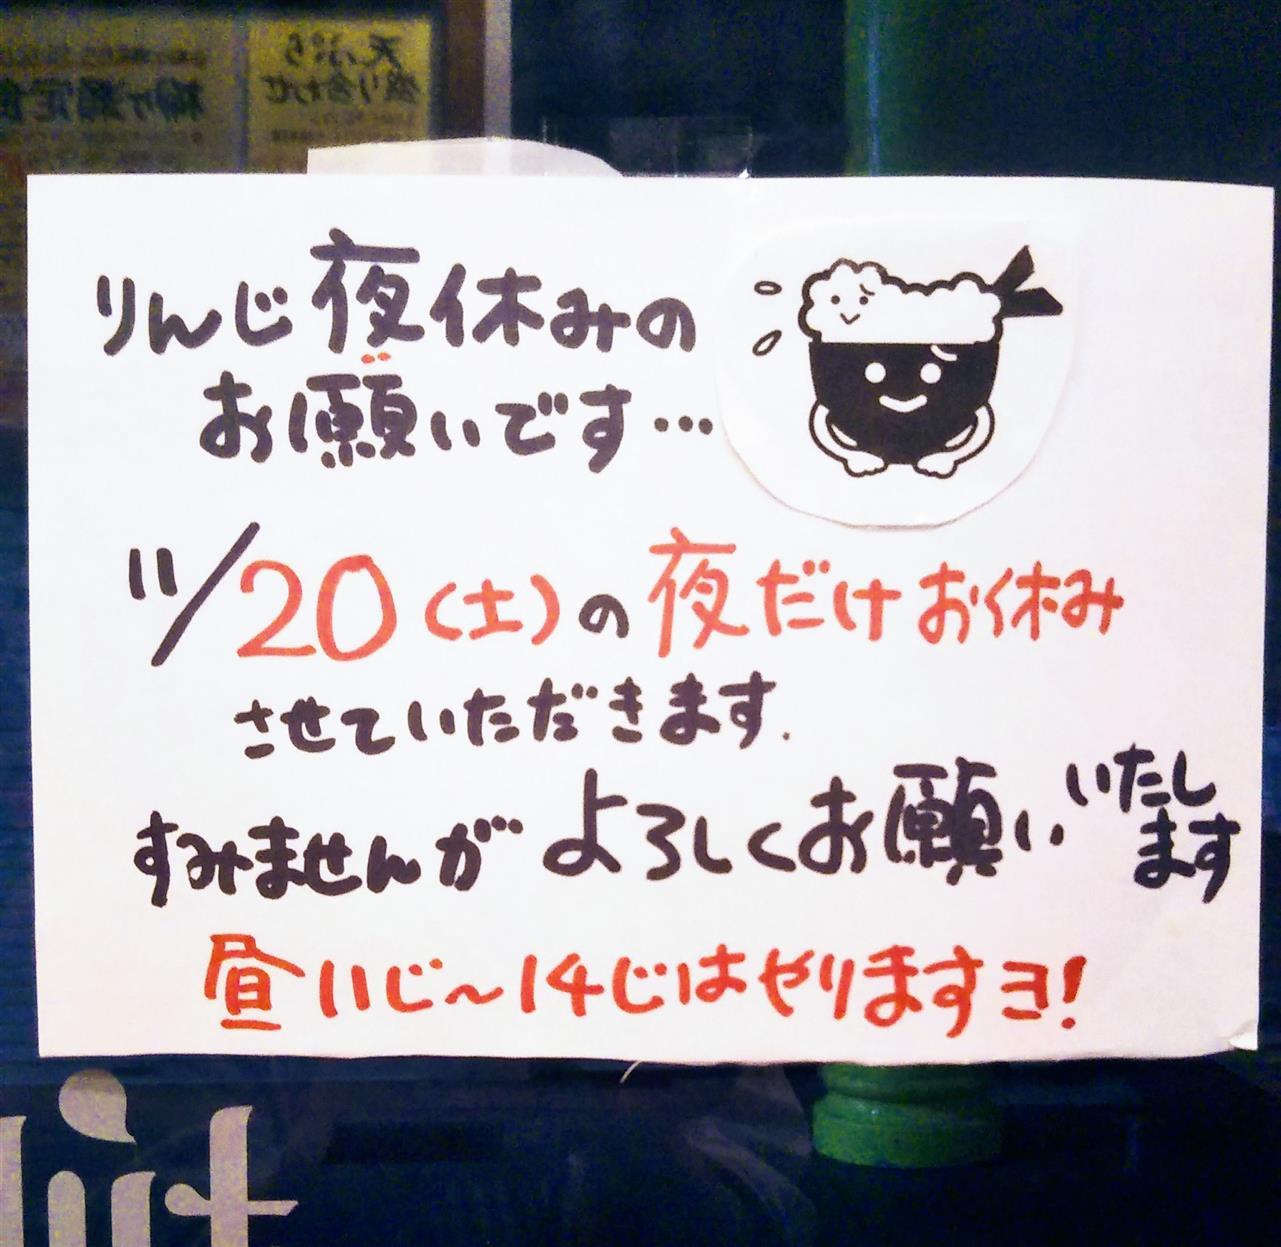 天ぷら
盛り合わせ
りんじ夜休みの
お願いです…
11/20(土)の夜だけお休み
させていただきます.
すみませんがよろしくお願いいたします
昼11じ〜14じはやりますヨ!